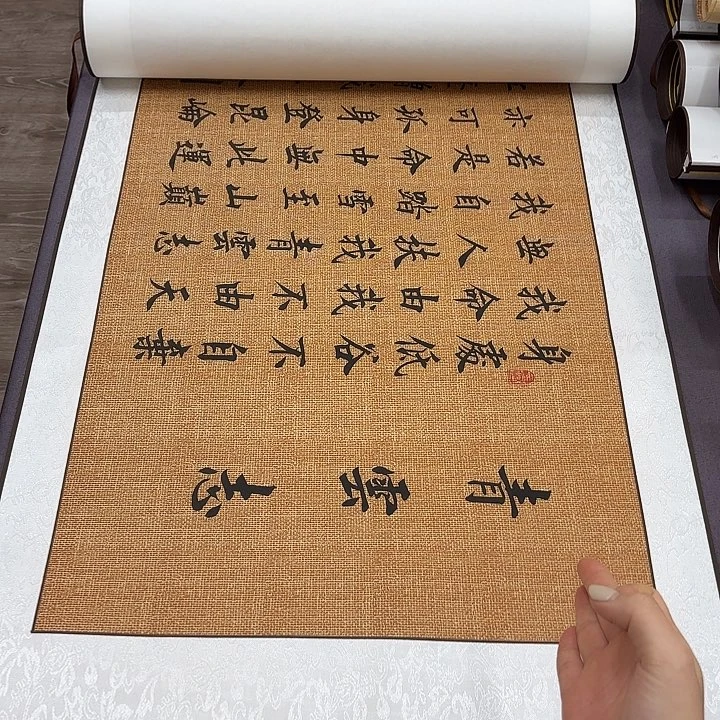 青雲志
身處低谷不自棄
我命由我不由天
無人扶我青雲志
我自踏雪至山巔
若是命中無此運
亦可孤身登昆崙